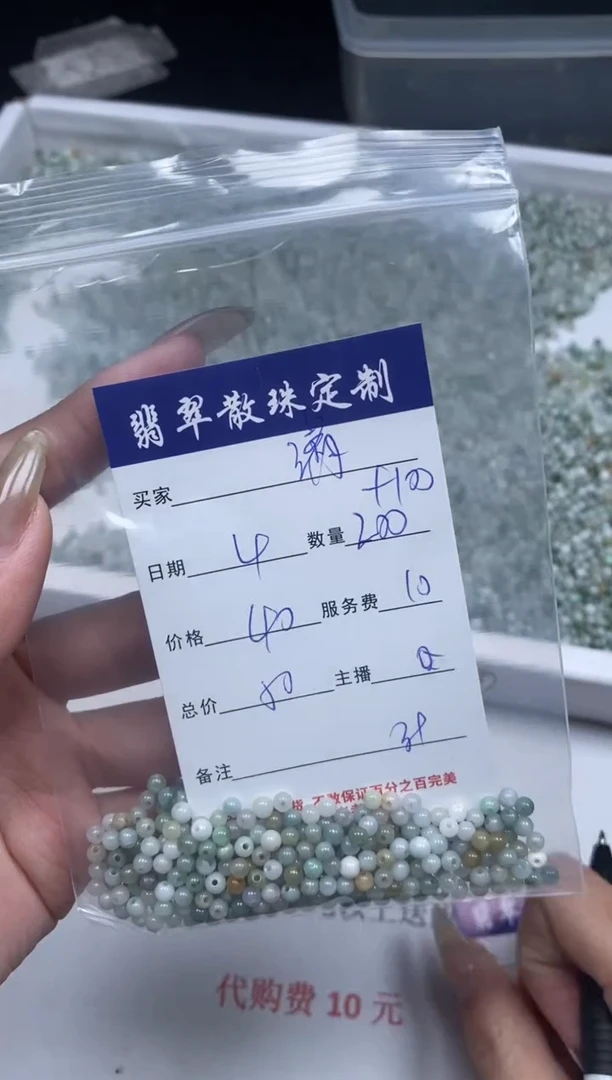 翡翠散珠定制
买家
+100
日期 4 数量 200
价格 40 服务费 10
总价 主播
备注
保证百分之百完美
代购费 10 元